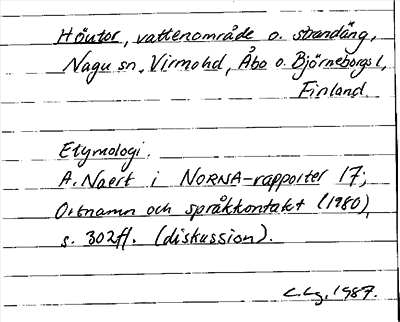 Höutor, vattenområde o. strandäng,
Nagu sn, Virmo hd, Åbo o. Björneborgs l,
Finland.
Etymologi.
A. Naert i NORNA-rapporter 17;
Ortnamn och språkkontakt (1980),
s. 302ff. (diskussion).
1987.